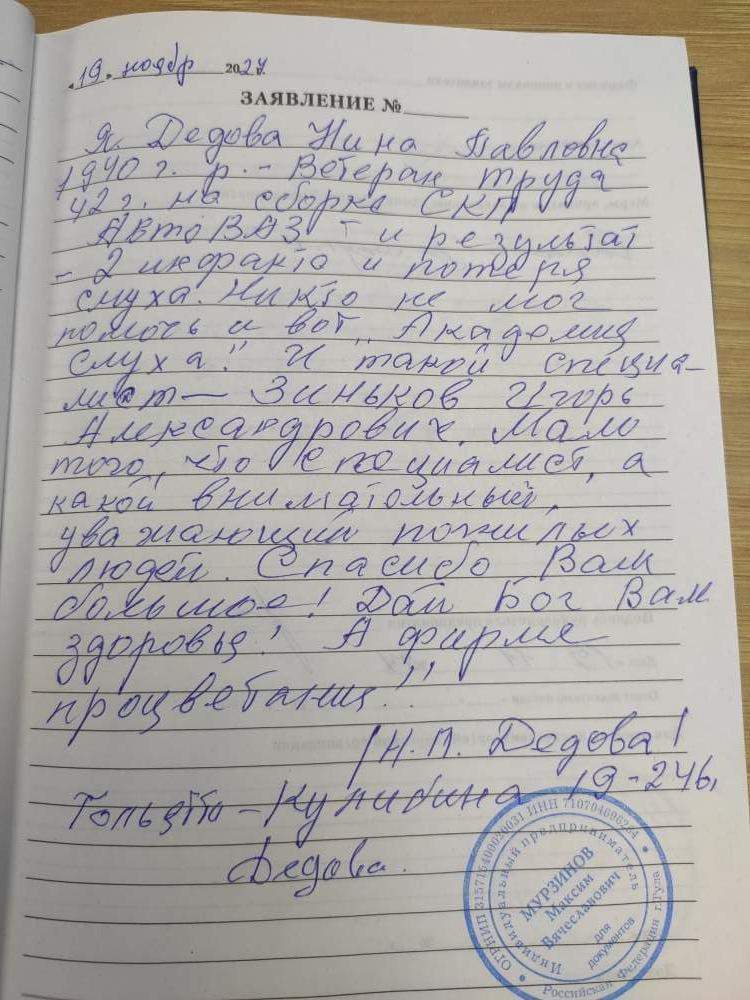 19. ноябр 2024
ЗАЯВЛЕНИЕ №
Я. Дедова Нина Павловна
1940 г. р. - Ветеран труда
42 г. на сборке СКП
АвтоВАЗ - и результат
- 2 инфаркта и потеря
слуха. Никто не мог
помочь и вот „Академия
слуха"! И такой специа-
лист — Зиньков Игорь
Александрович. Мало
того, что специалист, а
какой внимательный,
уважающий пожилых
людей. Спасибо Вам
большое! Дай Бог Вам
здоровья! А фирме
процветания!!!
/Н.П. Дедова/
Тольятти - Кулибина 19-246,
Дедова.
ОГРНИП 315715400020031 ИНН 710704696244
Индивидуальный предприниматель
МУРЗИНОВ
Максим
Вячеславович
для
документов
Российская Федерация г.Тула